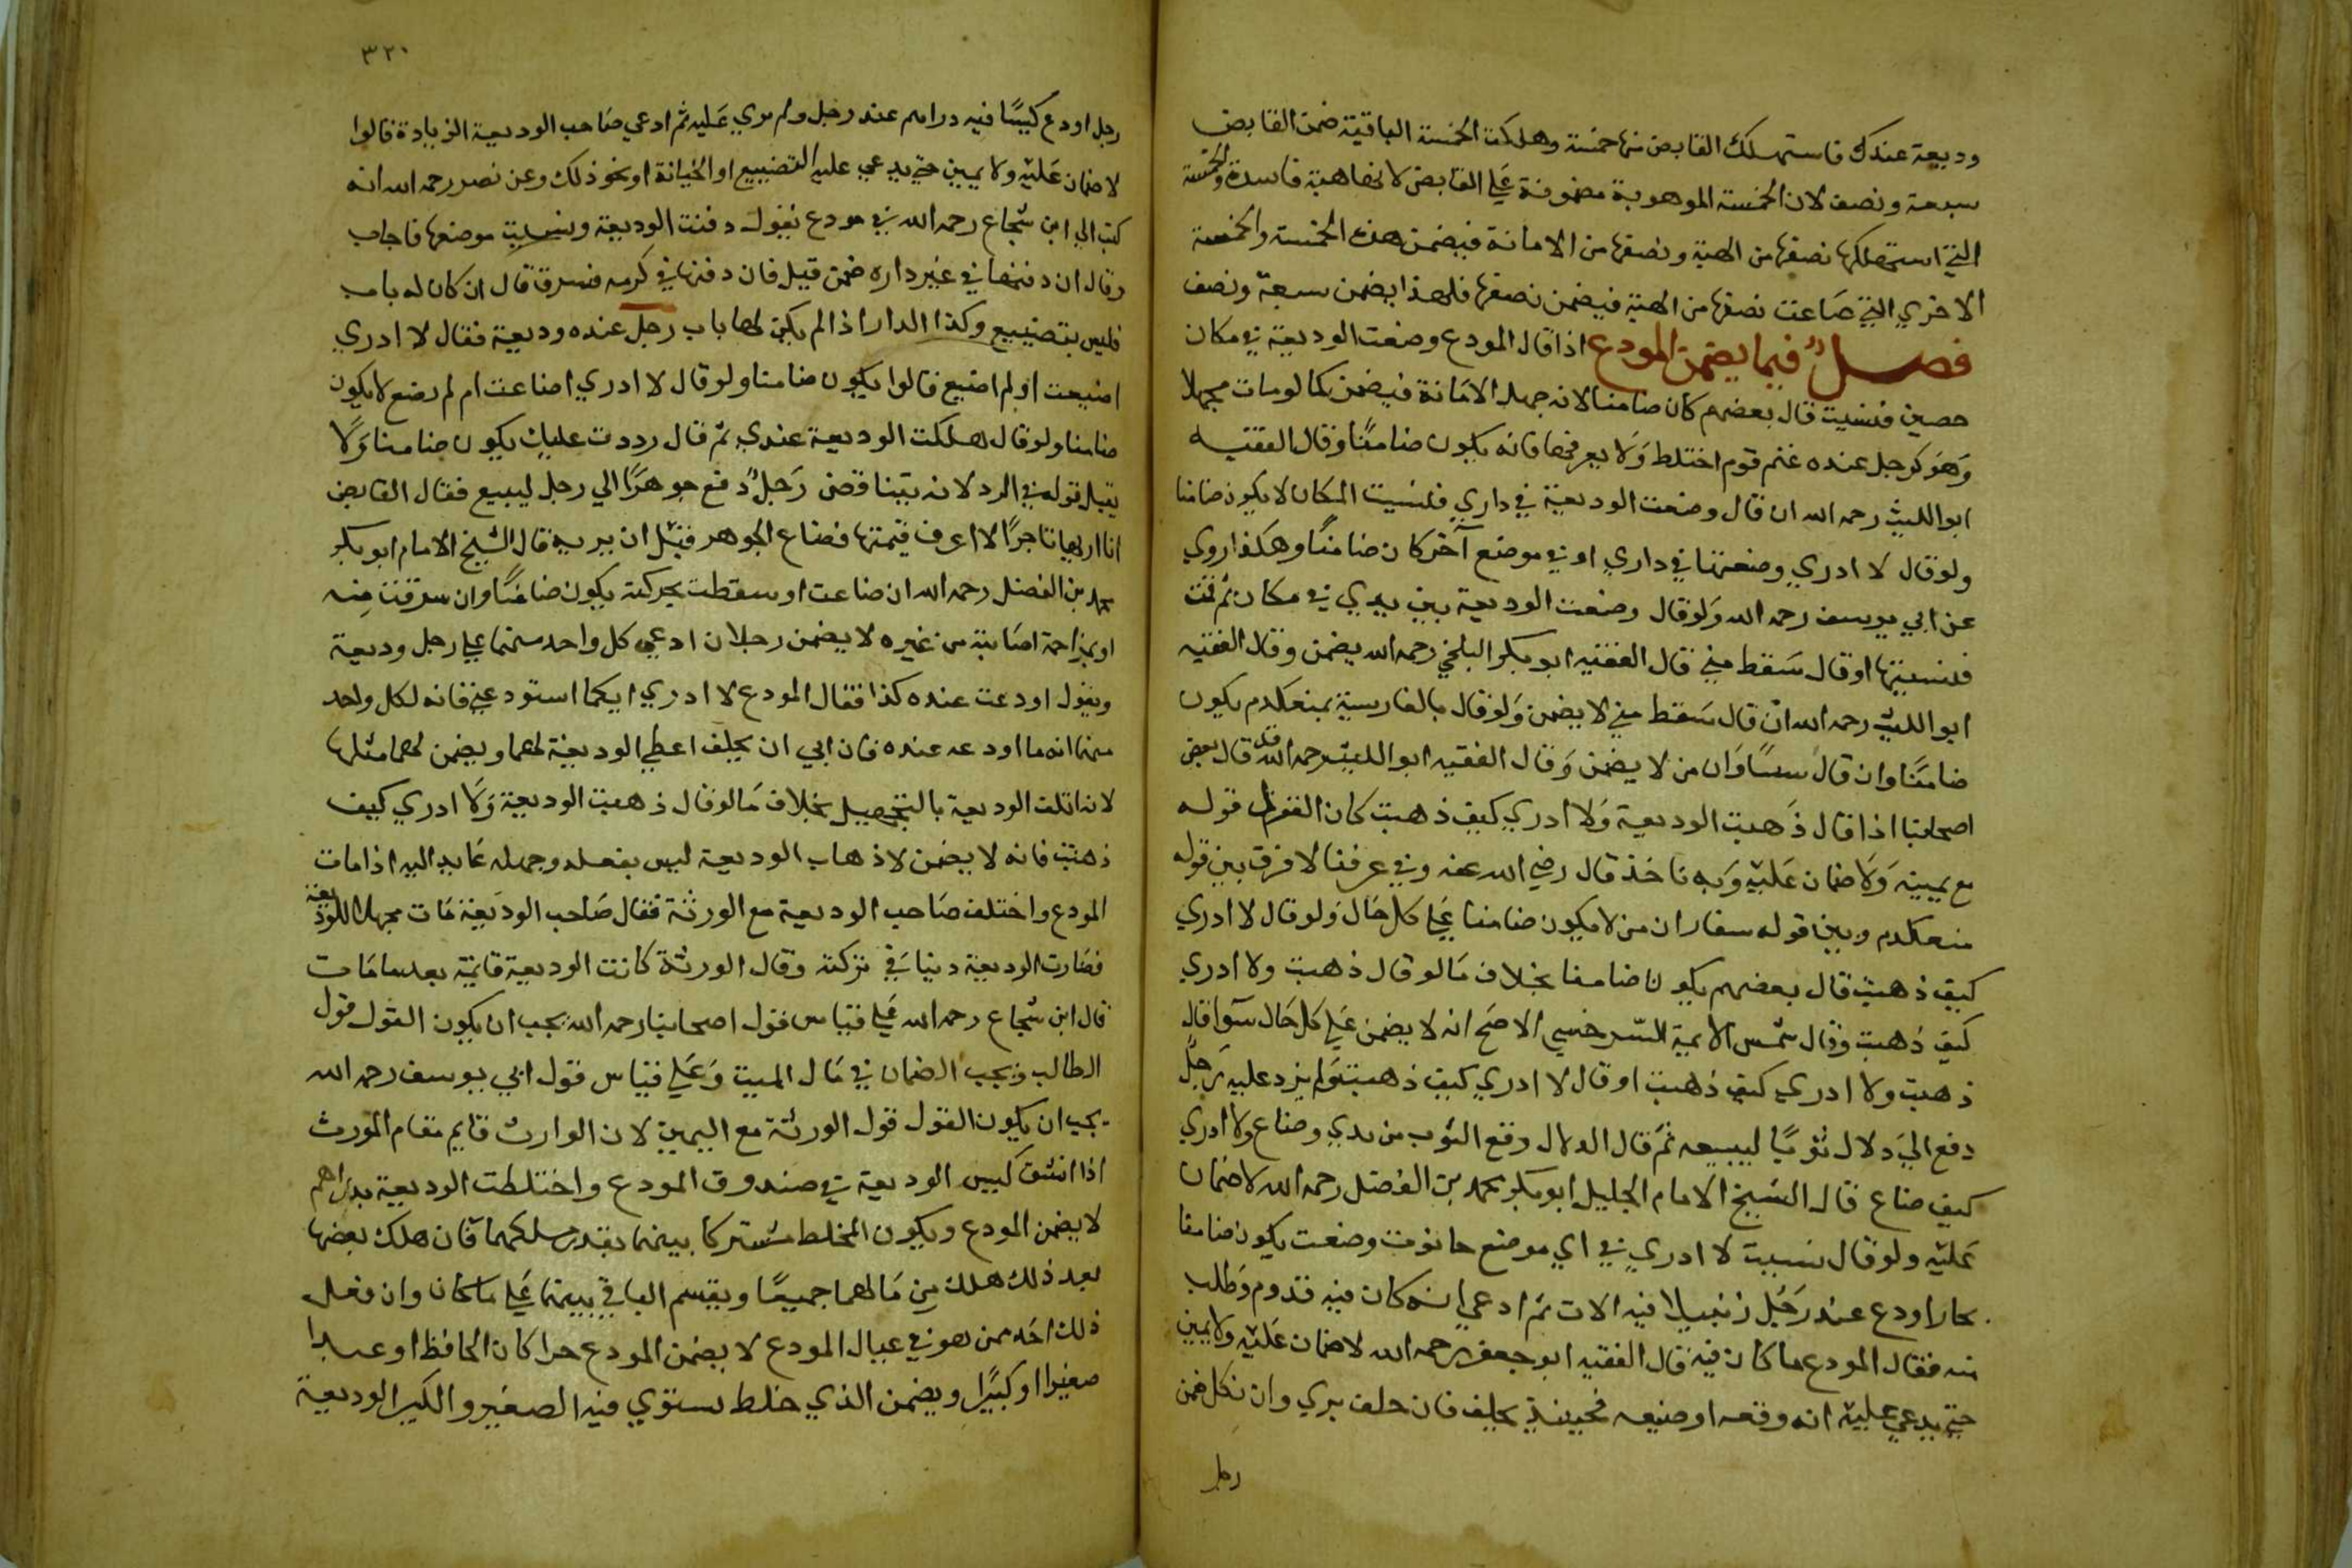 وديعة عندك فاستهلك القابض منها خمسة وهلكت الخمسة الباقية ضمن القابض
سبعة ونصف لان الخمسة الموهوبة مضمونة علي القابض لانها هبة فاسدة والخمسة
التي استهلكها نصفها من الهبة ونصفها من الامانة فيضمن هذه الخمسة والخمسة
الاخري التي ضاعت نصفها من الهبة فيضمن نصفها فلهذا يضمن سبعة ونصف
فصل فيما يضمن المودع اذا قال المودع وضعت الوديعة في مكان
حصين فنسيت قال بعضهم كان ضامنا لانه جهل الامانة فيضمن كما لو مات مجهلا
وهو كرجل عنده غنم قوم اختلط ولا يعرفها فانه يكون ضامنا وقال الفقيه
ابو الليث رحمه الله ان قال وضعت الوديعة في داري فنسيت المكان لا يكون ضامنا
ولو قال لا ادري وضعتها في داري او في موضع آخر كان ضامنا وهكذا روي
عن ابي يوسف رحمه الله ولو قال وضعت الوديعة بين يدي في مكان ثم قمت
فنسيتها او قال سقط مني قال الفقيه ابو بكر البلخي رحمه الله يضمن وقال الفقيه
ابو الليث رحمه الله ان قال سقط مني لا يضمن ولو قال بالفارسية بيفكندم يكون
ضامنا وان قال من لا يضمن وقال الفقيه ابو الليث رحمه الله قد قال بعض
اصحابنا اذا قال ذهبت الوديعة ولا ادري كيف ذهبت كان القول قوله
مع يمينه ولا ضمان عليه وبه ناخذ قال رضي الله عنه وفي عرفنا لا فرق بين قوله
وبين قوله من لا يكون ضامنا علي كل حال ولو قال لا ادري
كيف ذهبت قال بعضهم يكون ضامنا بخلاف ما لو قال ذهبت ولا ادري
كيف ذهبت وقال شمس الايمة السرخسي الاصح انه لا يضمن علي كل حال سوآ قال
ذهبت ولا ادري كيف ذهبت او قال لا ادري كيف ذهبت ولم يزد عليه رجل
دفع الي دلال ثوبا ليبيعه ثم قال الدلال وقع الثوب من يدي وضاع ولا ادري
كيف ضاع قال الشيخ الامام الجليل ابو بكر محمد بن الفضل رحمه الله لا ضمان
عليه ولو قال نسيت لا ادري في اي موضع حانوت وضعت يكون ضامنا
نجار اودع عند رجل زنبيلا فيه الات ثم ادعي انه كان فيه قدوم وطلب
منه فقال المودع ما كان فيه قال الفقيه ابو جعفر رحمه الله لا ضمان عليه ولا يمين
حتي يدعي عليه انه دفعه او ضيعه فحينئذ يحلف فان حلف بري وان نكل ضمن
رجل
٣٢٠
رجل اودع كيسا فيه دراهم عند رجل ولم عليه ثم ادعي صاحب الوديعة الزيادة قالوا
لا ضمان عليه ولا يمين حتي يدعي عليه التضييع او الخيانة او نحو ذلك وعن نصر رحمه الله انه
كتب الي ابن شجاع رحمه الله في مودع يقول دفنت الوديعة ونسيت موضعها فاجاب
وقال ان دفنها في غير داره ضمن قيل فان دفنها في كرمه فسرق قال ان كان له باب
فليس بتضييع وكذا الدار اذا لم يكن لها باب رجل عنده وديعة فقال لا ادري
اضيعت او لم اضيع قالوا يكون ضامنا ولو قال لا ادري اضاعت ام لم تضع لا يكون
ضامنا ولو قال هلكت الوديعة عندي ثم قال رددت عليك يكون ضامنا ولا
يقبل قوله في الرد لانه يتناقض رجل دفع جوهرا الي رجل ليبيع فقال القابض
انا اريها تاجرا لاعرف قيمتها فضاع الجوهر قبل ان يريه قال الشيخ الامام ابو بكر
محمد بن الفضل رحمه الله ان ضاعت او سقطت بحركته يكون ضامنا وان سرقت منه
او بمزاحمة اصابته من غيره لا يضمن رجلان ادعي كل واحد منهما علي رجل وديعة
ويقول اودعت عنده كذا فقال المودع لا ادري ايكما استودعني فانه لكل واحد
منهما انه ما اودعه عنده فان ابي ان يحلف اعطي الوديعة لهما ويضمن لهما مثلها
لانه اتلف الوديعة بالتجهيل بخلاف ما لو قال ذهبت الوديعة ولا ادري كيف
ذهبت فانه لا يضمن لا ذهاب الوديعة ليس بفعله وجهله عايد اليه اذا مات
المودع واختلف صاحب الوديعة مع الورثة فقال صاحب الوديعة مات مجهلا للوديعة
فصارت الوديعة دينا في تركته وقال الورثة كانت الوديعة قايمة بعد ما مات
قال ابن شجاع رحمه الله علي قياس قول اصحابنا رحمه الله يجب ان يكون القول قول
الطالب ويجب الضمان في مال الميت وعلي قياس قول ابي يوسف رحمه الله
يجب ان يكون القول قول الورثة مع اليمين لان الوارث قايم مقام المورث
اذا انشق كيس الوديعة في صندوق المودع واختلطت الوديعة بدراهم
لا يضمن المودع ويكون المخلط مشتركا بينهما بقدر ملكهما فان هلك بعضها
بعد ذلك هلك من مالهما جميعا ويقسم الباقي بينهما علي ما كان وان فعل
ذلك احد ممن هو في عيال المودع لا يضمن المودع حرا كان الحافظ او عبدا
صغيرا او كبيرا ويضمن الذي خلط يستوي فيه الصغير والكبير الوديعة